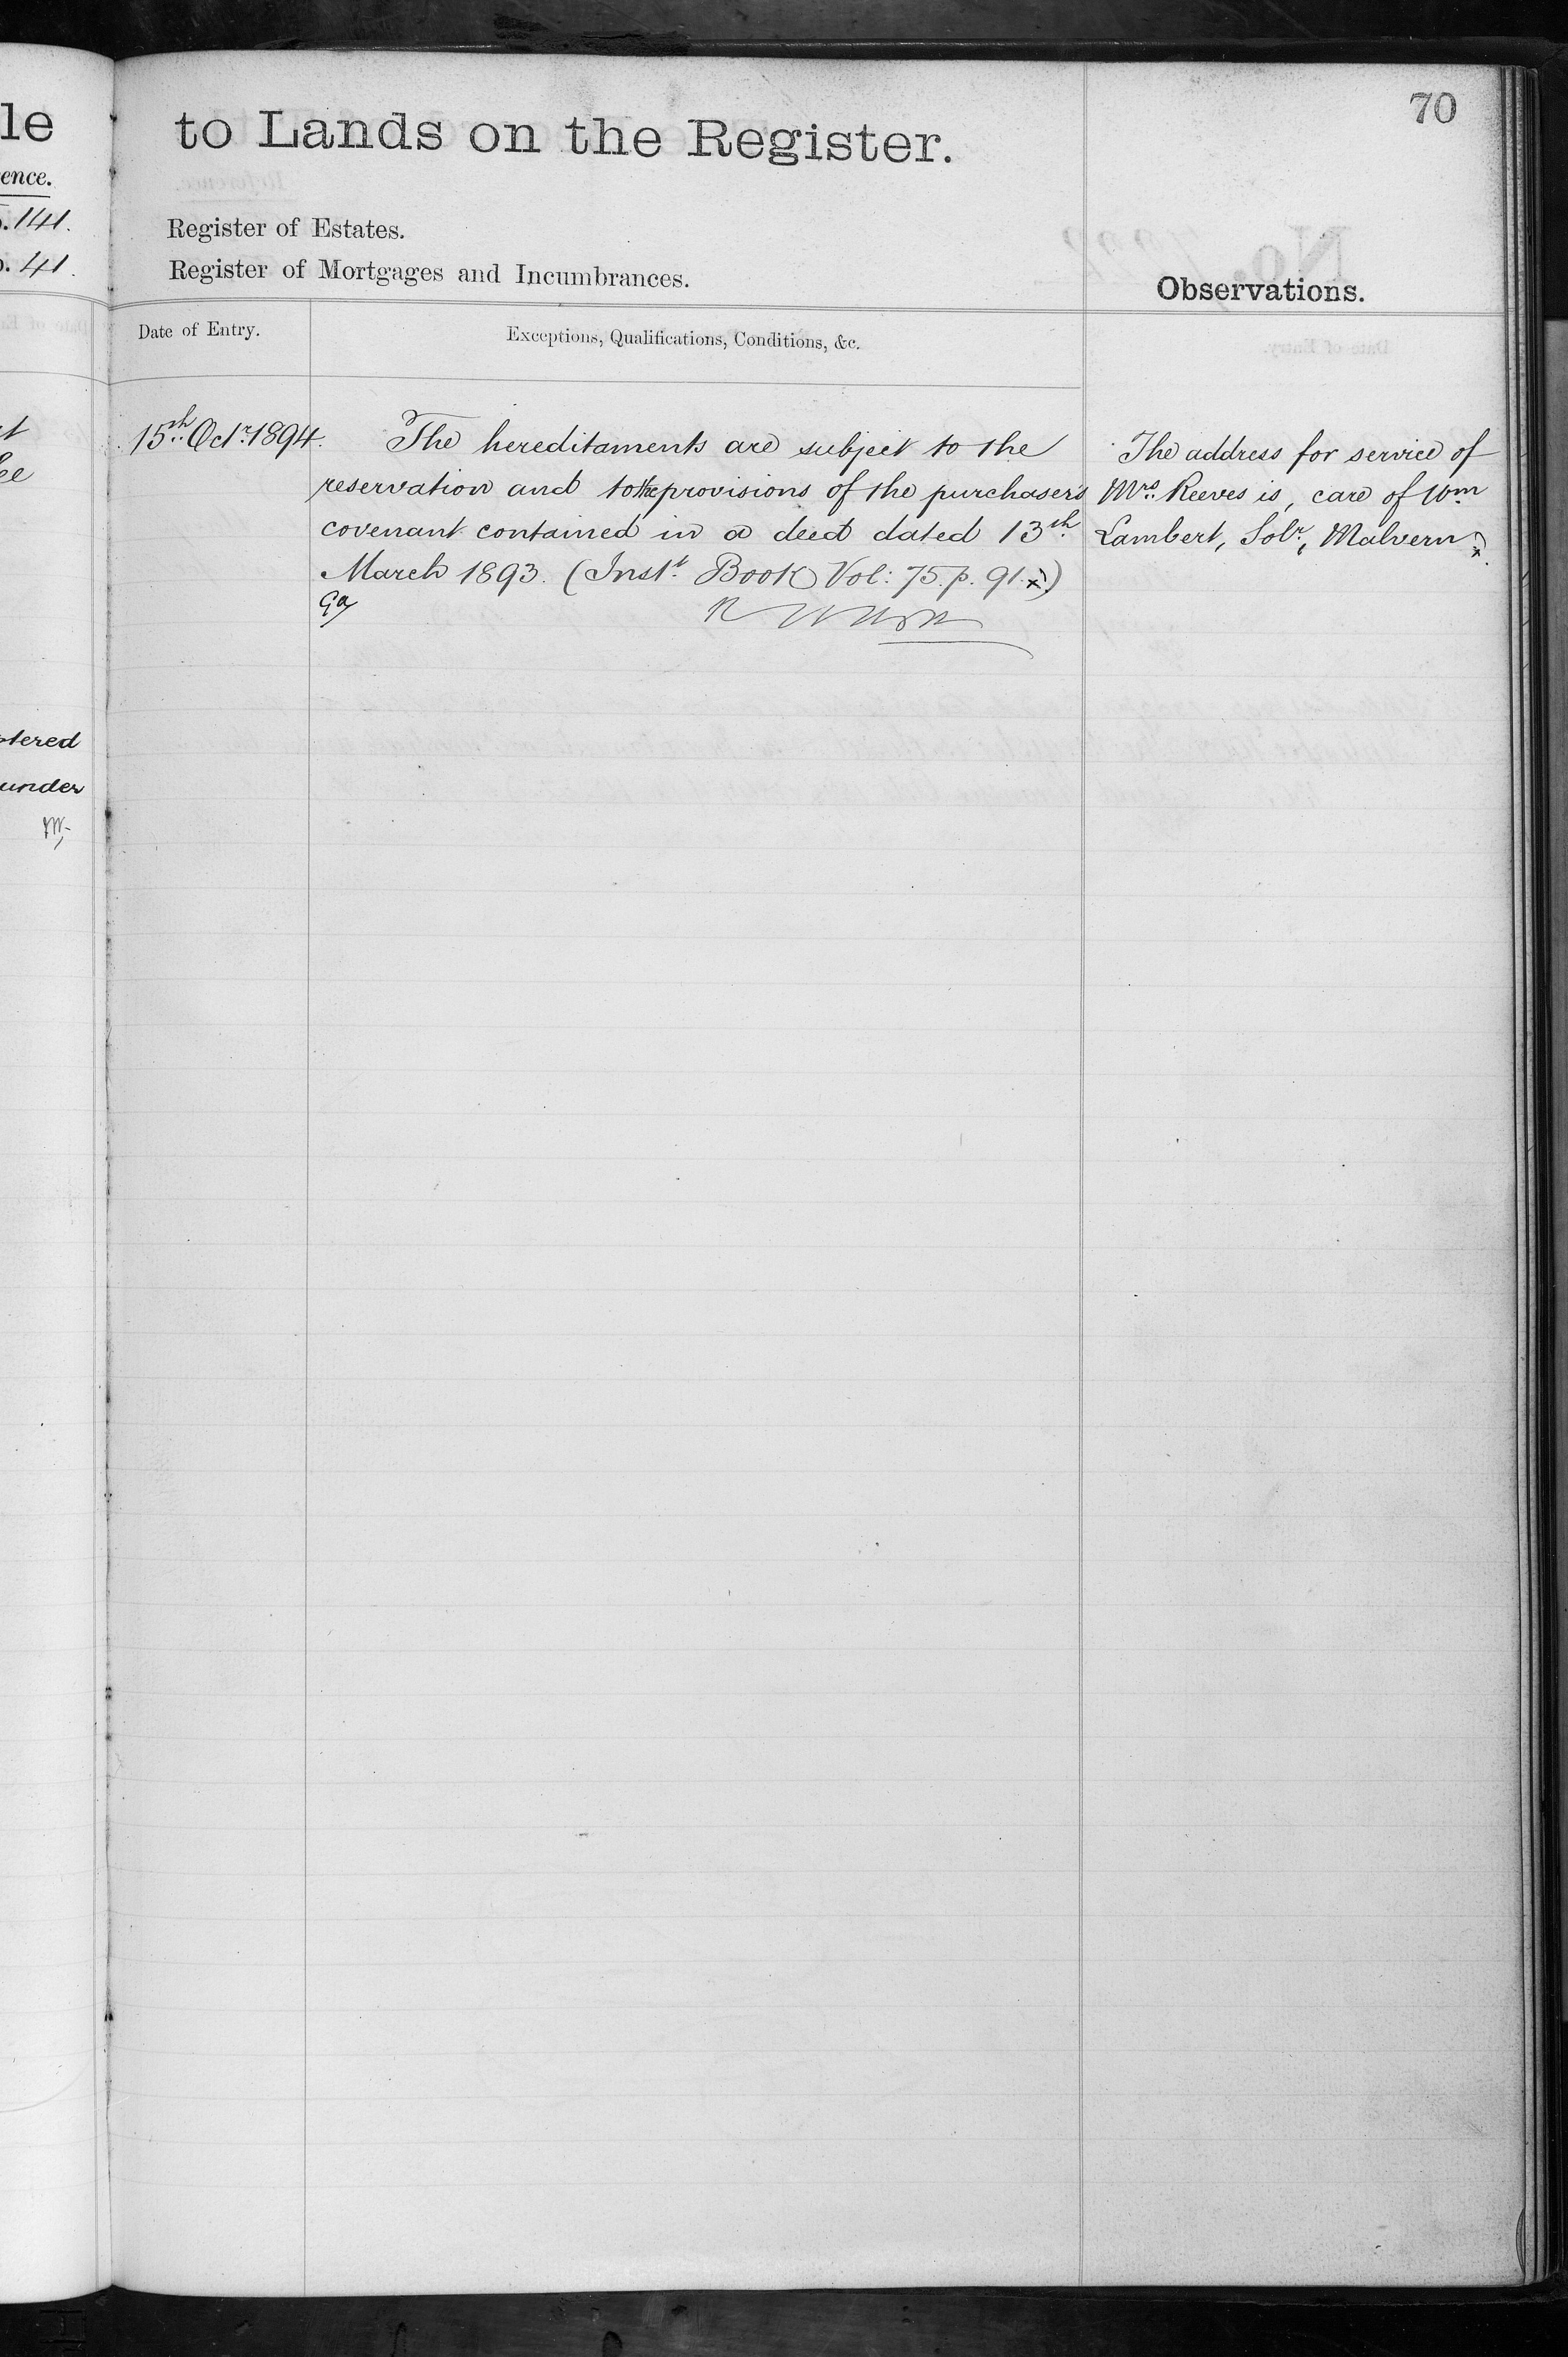 70
le
to Lands on the Register.
ence.
.141.
. 41.
Register of Estates.
Register of Mortgages and Incumbrances.
Observations.
Date of Entry.
Exceptions, Qualifications, Conditions, &c.
15th Octr 1894.
The hereditaments are subject to the
reservation and to the provisions of the purchaser's
covenant contained in a deed dated 13th
March 1893. (Inst. Book Vol: 75. p. 91.)
The address for service of
Mrs. Reeves is, care of Wm
Lambert, Solr, Malvern
stered
under